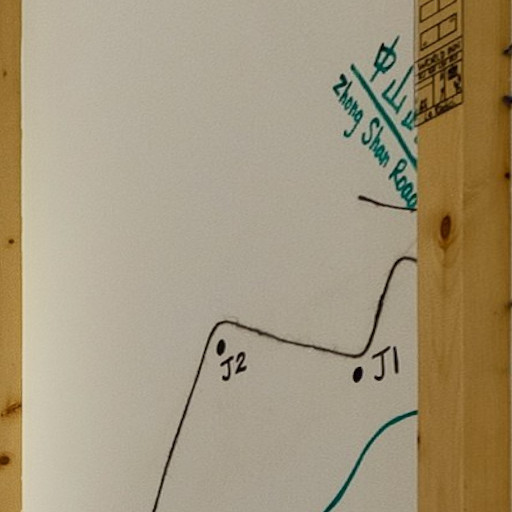 中山
Zhong Shan Road
J2
J1